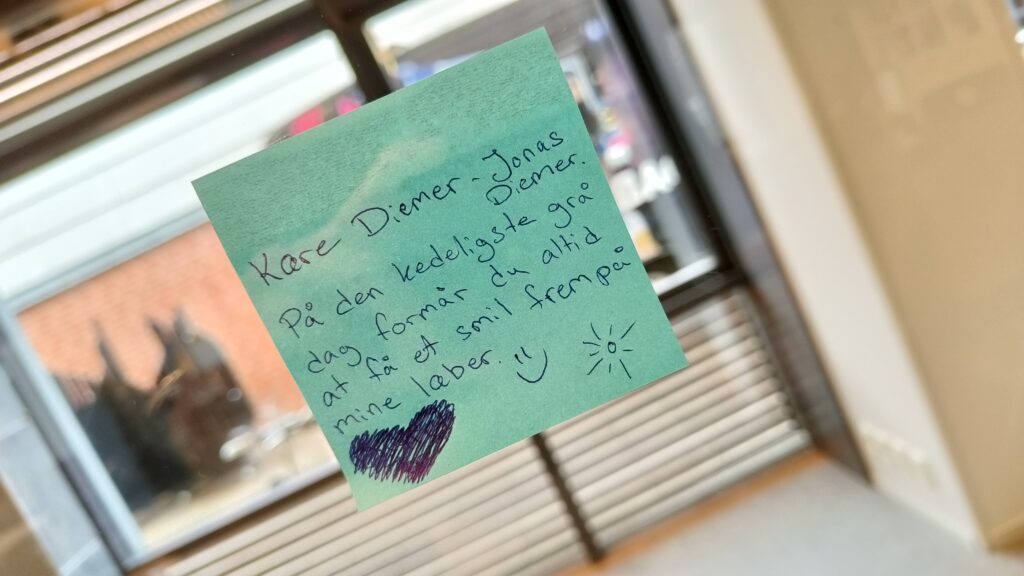 Kære Diemer-Jonas
Diemer.
På den kedeligste grå
dag formår du altid
at få et smil frempå
mine læber.